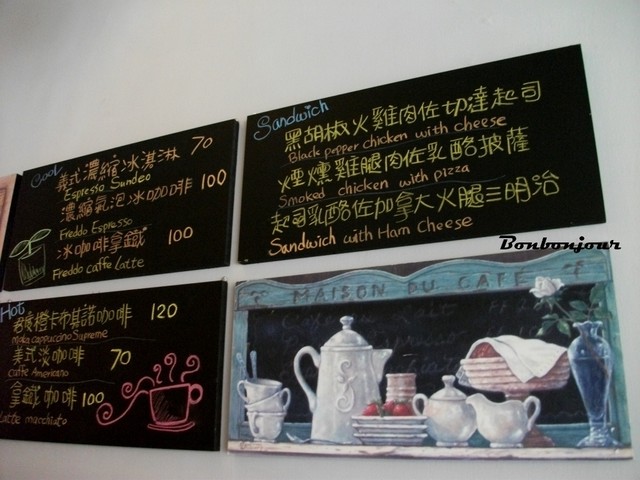 Cool
義式濃縮冰淇淋 70
Espresso Sundeo
濃縮氣泡冰咖啡 100
Freddo Espresso
冰咖啡拿鐵 100
Freddo caffe Latte
Hot
君度橙卡布其諾咖啡 120
Moka cappuccino Supreme
美式淡咖啡 70
Caffe Americano
拿鐵咖啡 100
Latte macchiato
Sandwich
黑胡椒火雞肉佐切達起司
Black pepper chicken with cheese
煙燻雞腿肉佐乳酪披薩
Smoked chicken with pizza
起司乳酪佐加拿大火腿三明治
Sandwich with Ham Cheese
Bonbonjour
MAISON DU CAFE